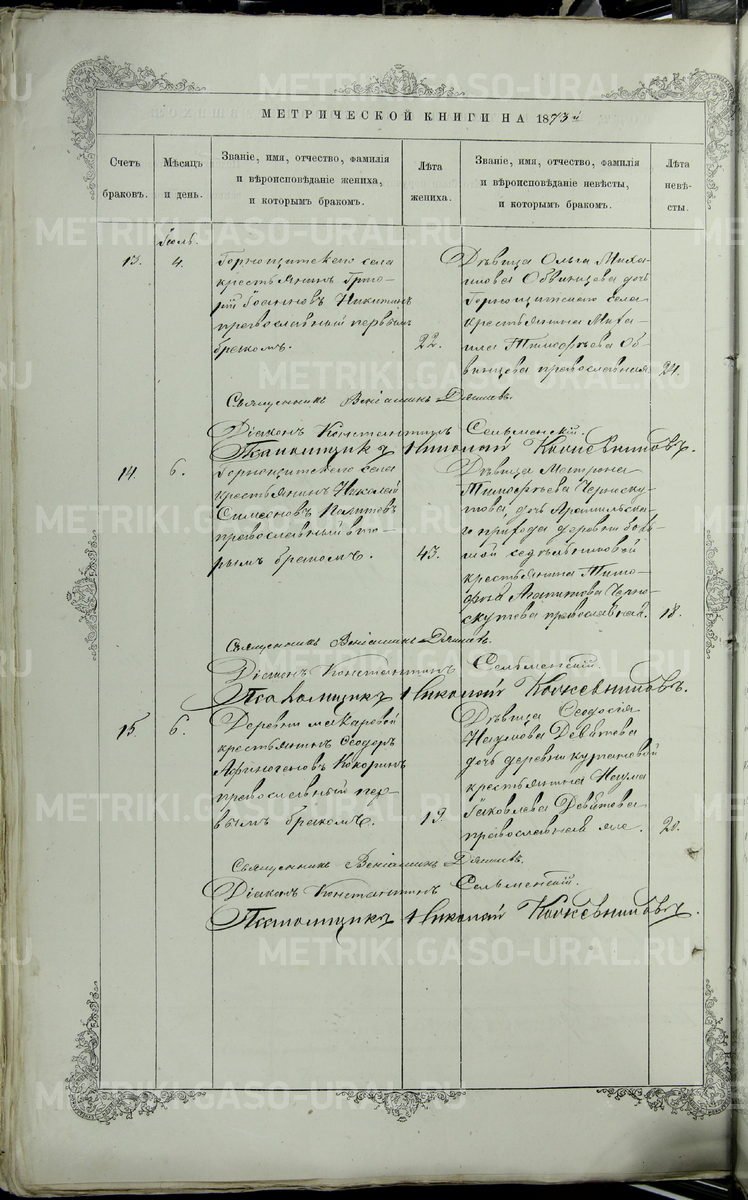 МЕТРИЧЕСКОЙ КНИГИ НА 1873й
Счетъ браковъ.
Мѣсяцъ и день.
Званіе, имя, отчество, фамилія
и вѣроисповѣданіе жениха,
и которымъ бракомъ.
Лѣта жениха.
Званіе, имя, отчество, фамилія
и вѣроисповѣданіе невѣсты,
и которымъ бракомъ.
Лѣта невѣсты.
Іюль.
13.
4.
Горнощитскаго села
крестьянинъ Григо-
рій Іоанновъ Никитинъ
православный первымъ
бракомъ.
22.
Дѣвица Ольга Миха-
илова Обвинцева дочь
Горнощитскаго села
крестьянина Миха-
ила Тимофѣева Об-
винцева православная
21.
Священникъ Веніаминъ
Діаконъ Константинъ Сельменскій.
Псаломщикъ Николай Кожевниковъ.
14.
6.
Горнощитскаго села
крестьянинъ Николай
Симеоновъ
православный вто-
рымъ бракомъ.
43.
Дѣвица Матрона
Тимофѣева Черноску-
това, дочь Арамильска-
го прихода деревни Боль-
шой Седельниковой
крестьянина Тимо-
фея Черно-
скутова православная.
18.
Священникъ Веніаминъ
Діаконъ Константинъ Сельменскій.
Псаломщикъ Николай Кожевниковъ.
15.
6.
Деревни Макаровой
крестьянинъ Ѳеодоръ
Афиногеновъ Кокоринъ
православный пер-
вымъ бракомъ.
19.
Дѣвица Ѳеодосія
Наумова Девятова
дочь деревни Кургановой
крестьянина Наума
Іаковлева Девятова
православная
20.
Священникъ Веніаминъ
Діаконъ Константинъ Сельменскій.
Псаломщикъ Николай Кожевниковъ.
METRIKI.GASO-URAL.RU